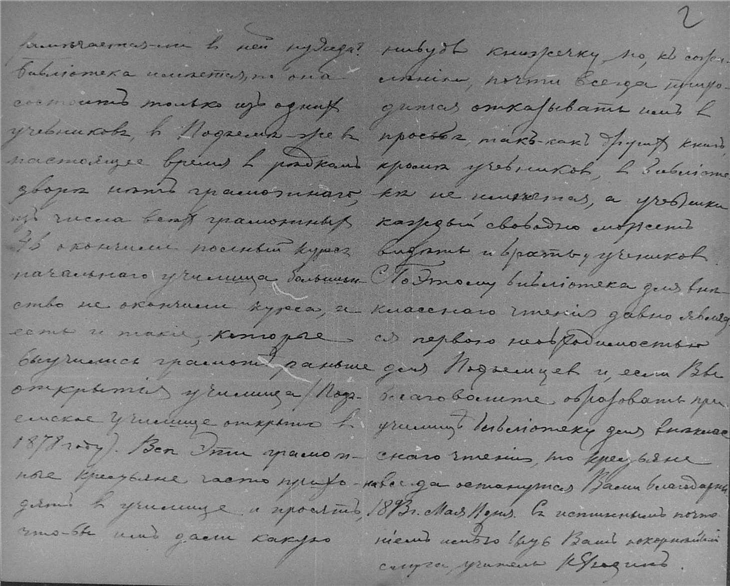 2
въ ней нужда?
Библіотека имеется, но она
состоитъ только изъ однихъ
учебниковъ, въ Подъемѣ-же въ
настоящее время въ рѣдкомъ
дворѣ нѣтъ грамотнаго,
изъ числа всѣхъ грамотныхъ
36 окончили полный курсъ
начальнаго училища, большин
ство не окончили курса, а
есть и такіе, которые
выучились грамотѣ раньше
открытія училища (Подъ
емское училище открыто въ
1878 году). Всѣ эти грамот
ные крестьяне часто прихо
дятъ въ училище и просятъ,
что-бы имъ дали какую
нибудь книжечку, но, къ сожа
лѣнію, почти всегда прихо
дится отказывать имъ въ
просьбѣ, такъ-какъ другихъ книгъ,
кромѣ учебниковъ, въ библіоте
кѣ не имѣется, а учебники
каждый свободно можетъ
видѣть и брать у учениковъ.
Поэтому библіотека для внѣ
класснаго чтенія давно являет
ся первою необходимостью
для Подъемцевъ и, если Вы
благоволите образовать при
училищѣ библіотеку для внѣклас
снаго чтенія, то крестьяне
всегда останутся Вами благодарны
1893 г. Мая дня. Съ истиннымъ почте
ніемъ имѣю быть Вашъ покорнѣйшій
слуга, учитель